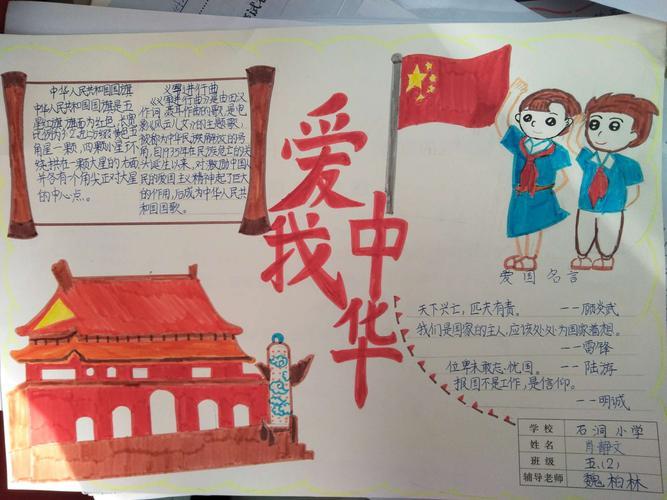 中华人民共和国国旗
中华人民共和国国旗是五
星红旗,旗面为红色,长宽
比例为3:2,左上方缀黄色五
角星一颗,四颗小星环
绕拱在一颗大星的右面,
并各有个角尖正对大星
的中心点。
义勇进行曲
《义勇进行曲》是由田汉
作词,聂耳作曲的歌,是电
影《风云儿女》的主题歌,
被称为中华民族解放的号
角,自1935年在民族危亡的关
头诞生以来,对激励中国人
民的爱国主义精神起了巨大
的作用,后成为中华人民共
和国国歌。
爱我
中华
爱国名言
天下兴亡,匹夫有责。 ——顾炎武
我们是国家的主人,应该处处为国家着想。
——雷锋
位卑未敢忘忧国。 ——陆游
报国不是工作,是信仰。
——明诚
学校 石洞小学
姓名 肖静文
班级 五.(2)
辅导老师 魏柏林